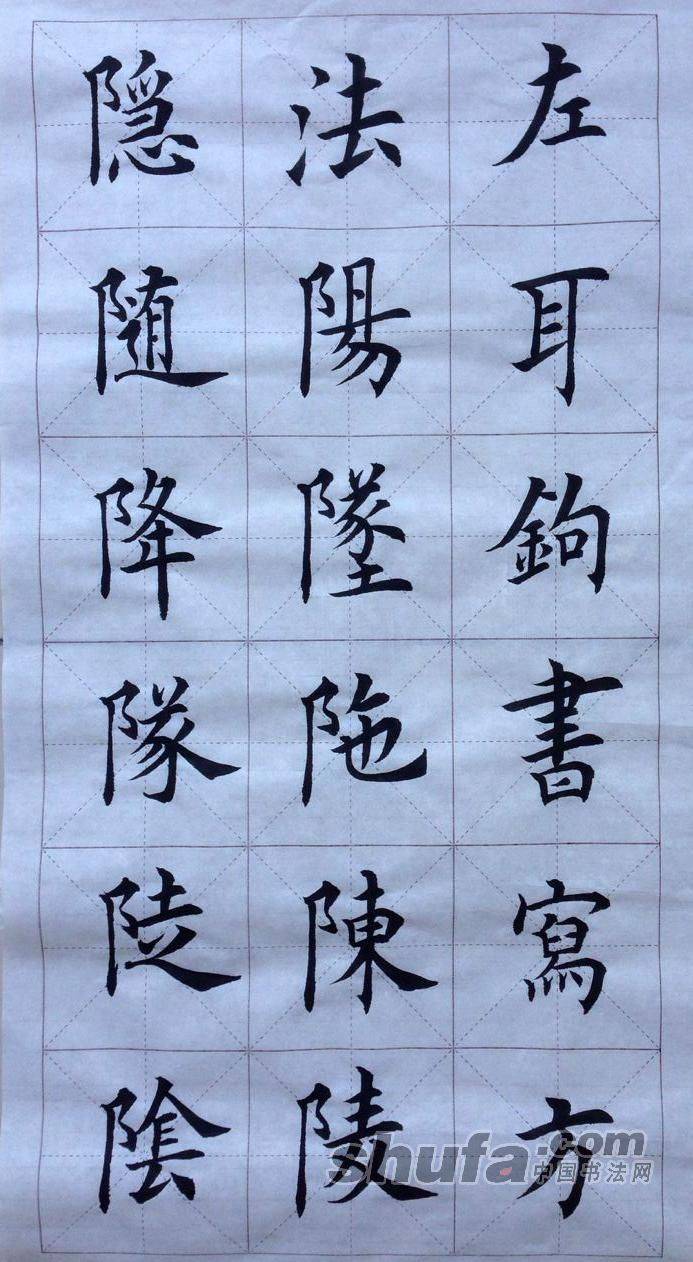 左耳鉤書寫方
法陽墜陁陳陵
隐随降隊陡陰
shufa.com
中国书法网